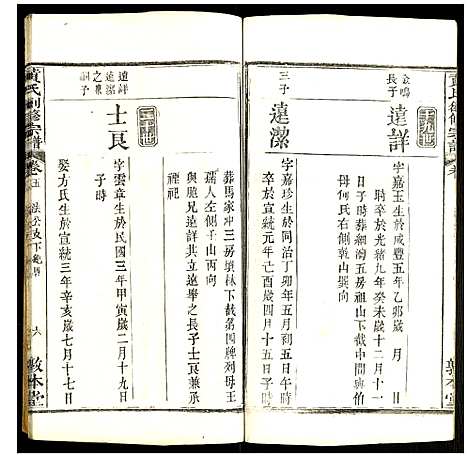 黃氏創修宗譜 卷
敦本堂
三十九世
金鳴長子
達詳
字嘉玉生於咸豐五年乙卯歲 月 日
時卒於光緒九年癸未歲十二月十一
日子時葬細灣五房祖山下截中間與伯
母何氏右側乾山巽向
三子
達潔
字嘉珍生於同治丁卯年五月初五日
卒於宣統元年己酉歲四月十五日子時
葬馬家冲三房墳林下截第四牌列母王
孺人左側壬山丙向
與胞兄達詳共立達舉之長子士艮兼承
禋祀
四十世
達詳達潔之兼祧子
士艮
字雲章生於民國三年甲寅歲二月十九日
子時
娶方氏生於宣統三年辛亥歲七月十七日
黃氏創修宗譜 卷五
六
敦本堂